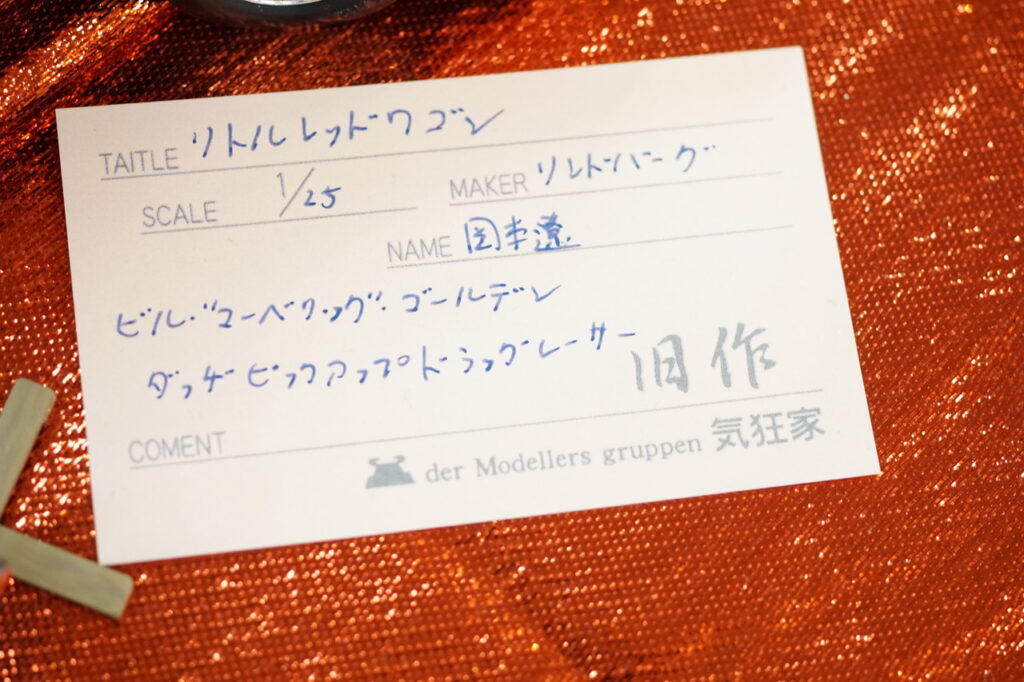 TAITLE リトルレッドワゴン
SCALE 1/25
MAKER リンドバーグ
NAME 岡本遼
ビル・"マーベリック"・ゴールデン
ダッヂピックアップドラッグレーサー
旧作
COMENT
der Modellers gruppen 気狂家